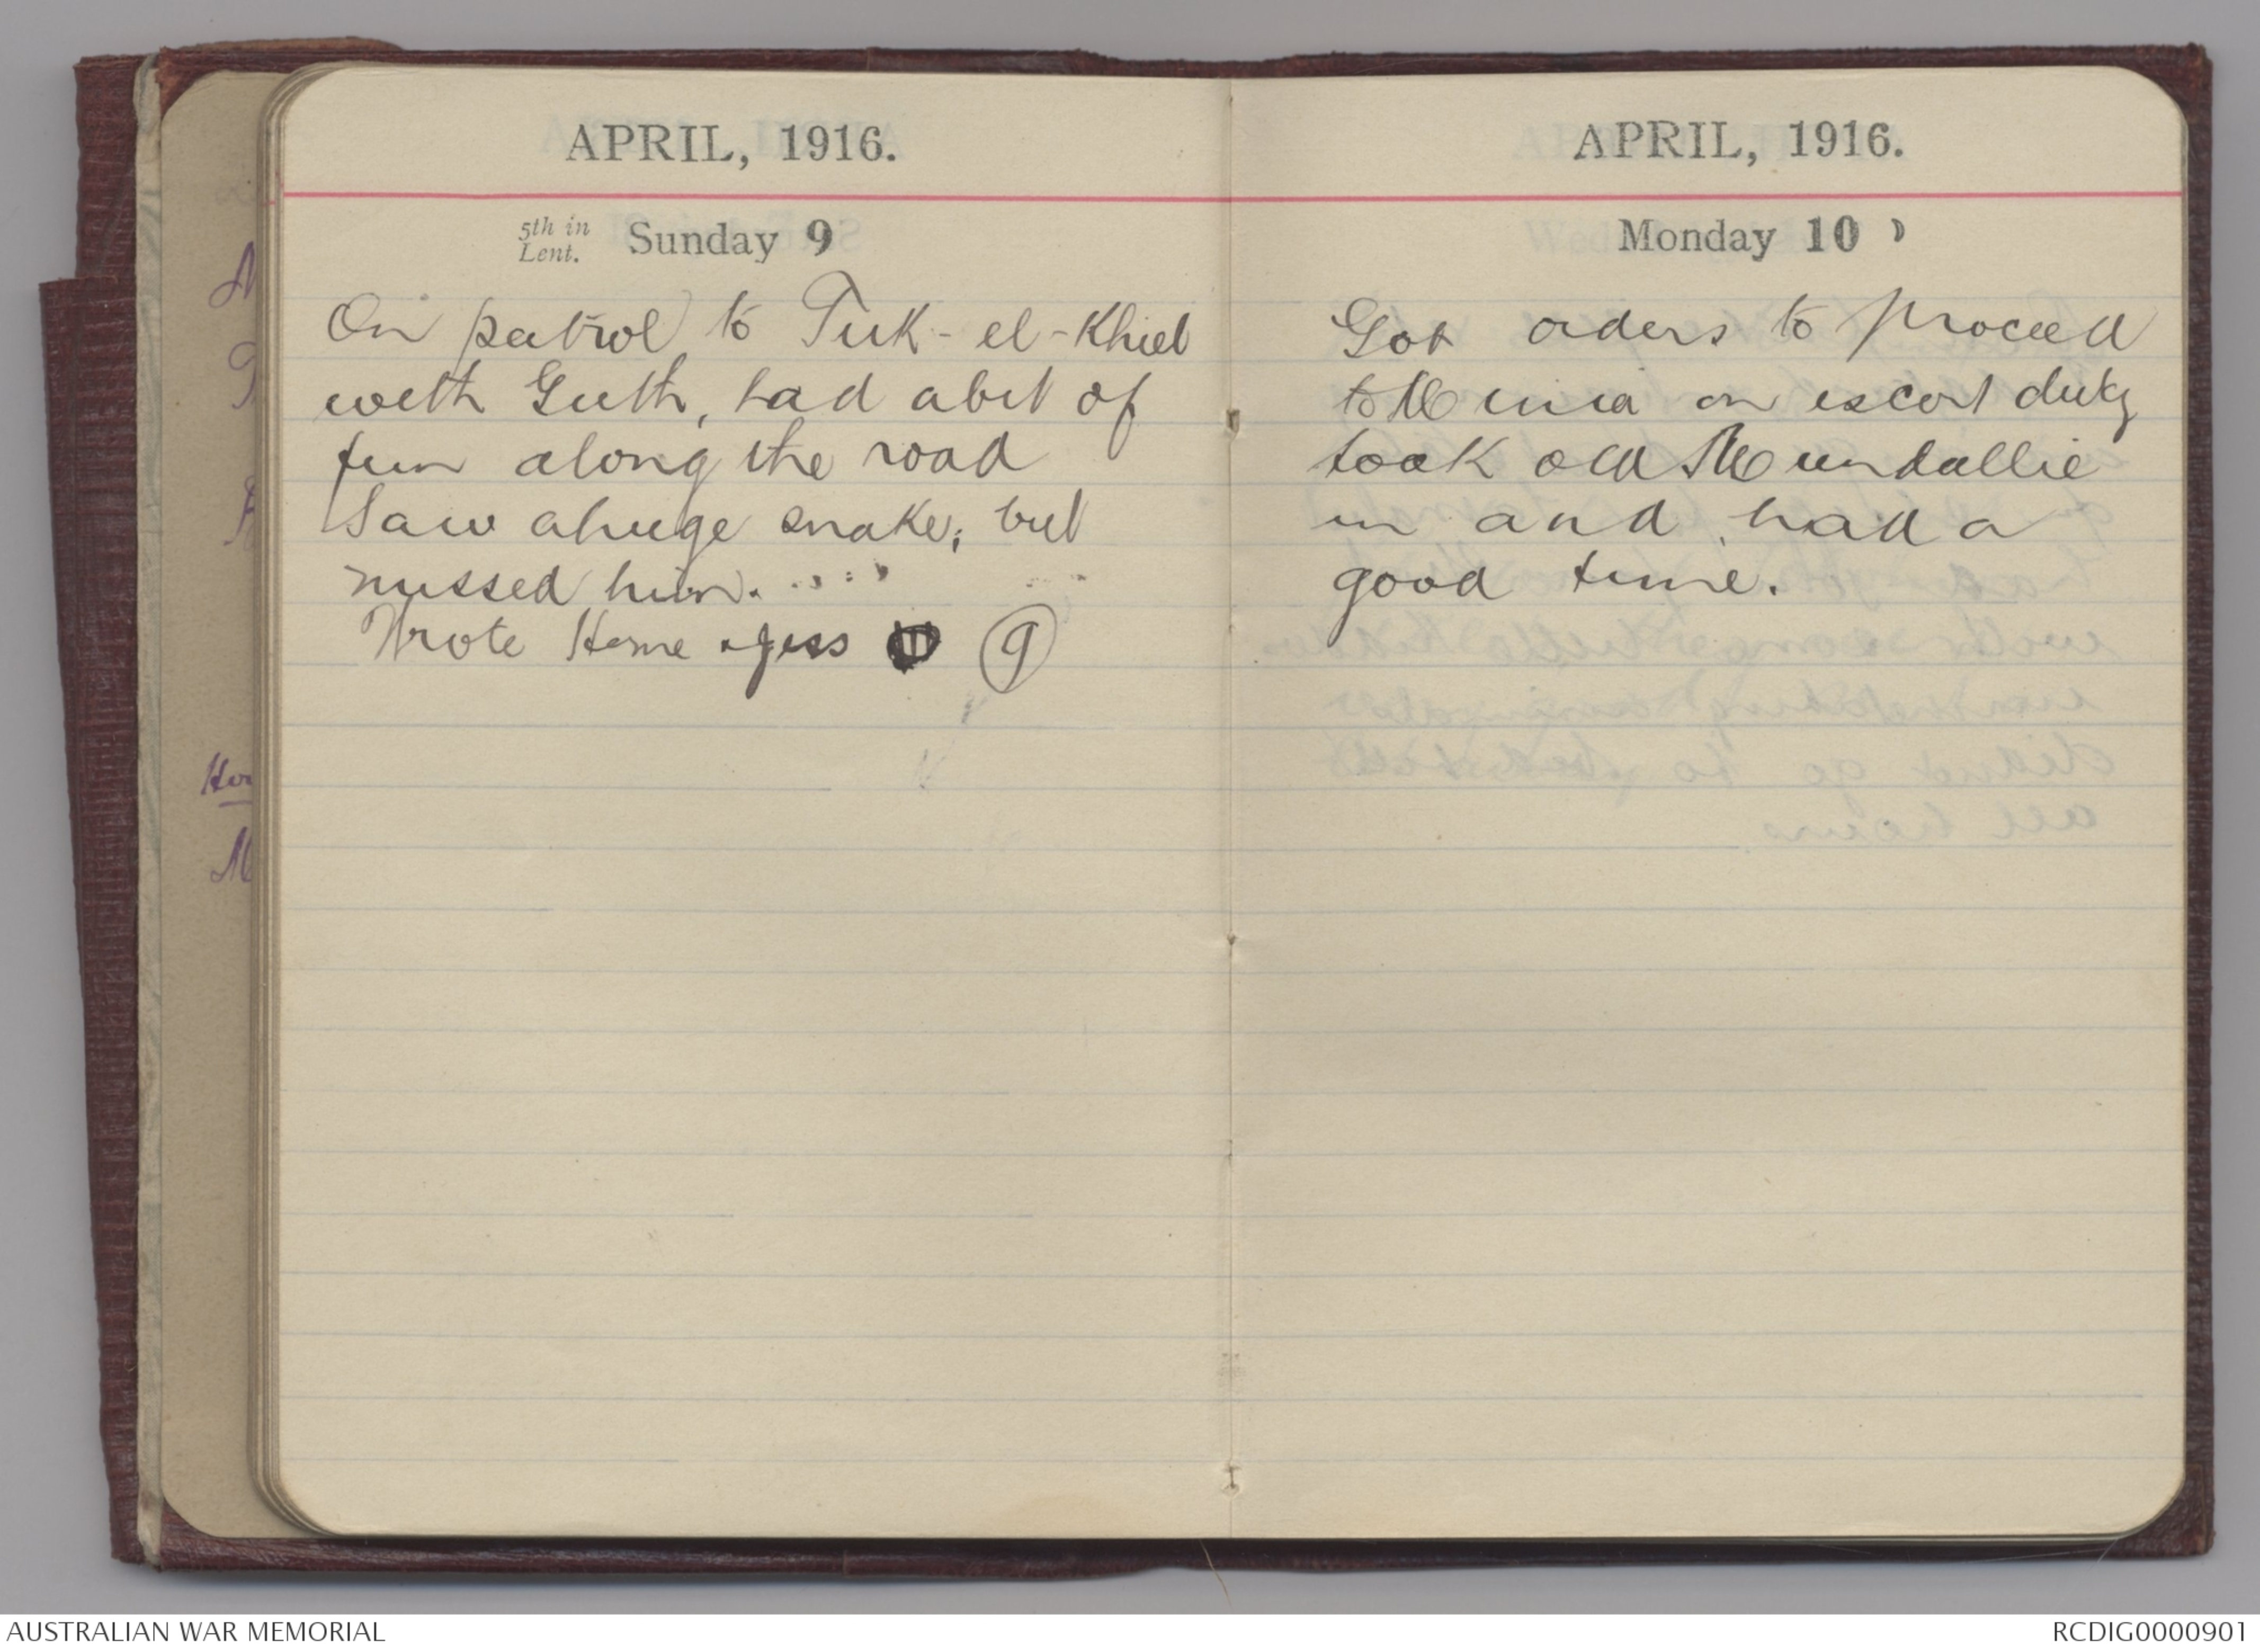 APRIL, 1916.
5th in Lent. Sunday 9
On patrol to Tuk-el-Khiel
with Guth, had a bit of
fun along the road
Saw a huge snake, but
missed him.
Wrote Home & Jess 9
APRIL, 1916.
Monday 10
Got orders to proceed
to Minia on escort duty
took old Mundallie
in and had a
good time.
AUSTRALIAN WAR MEMORIAL
RCDIG0000901